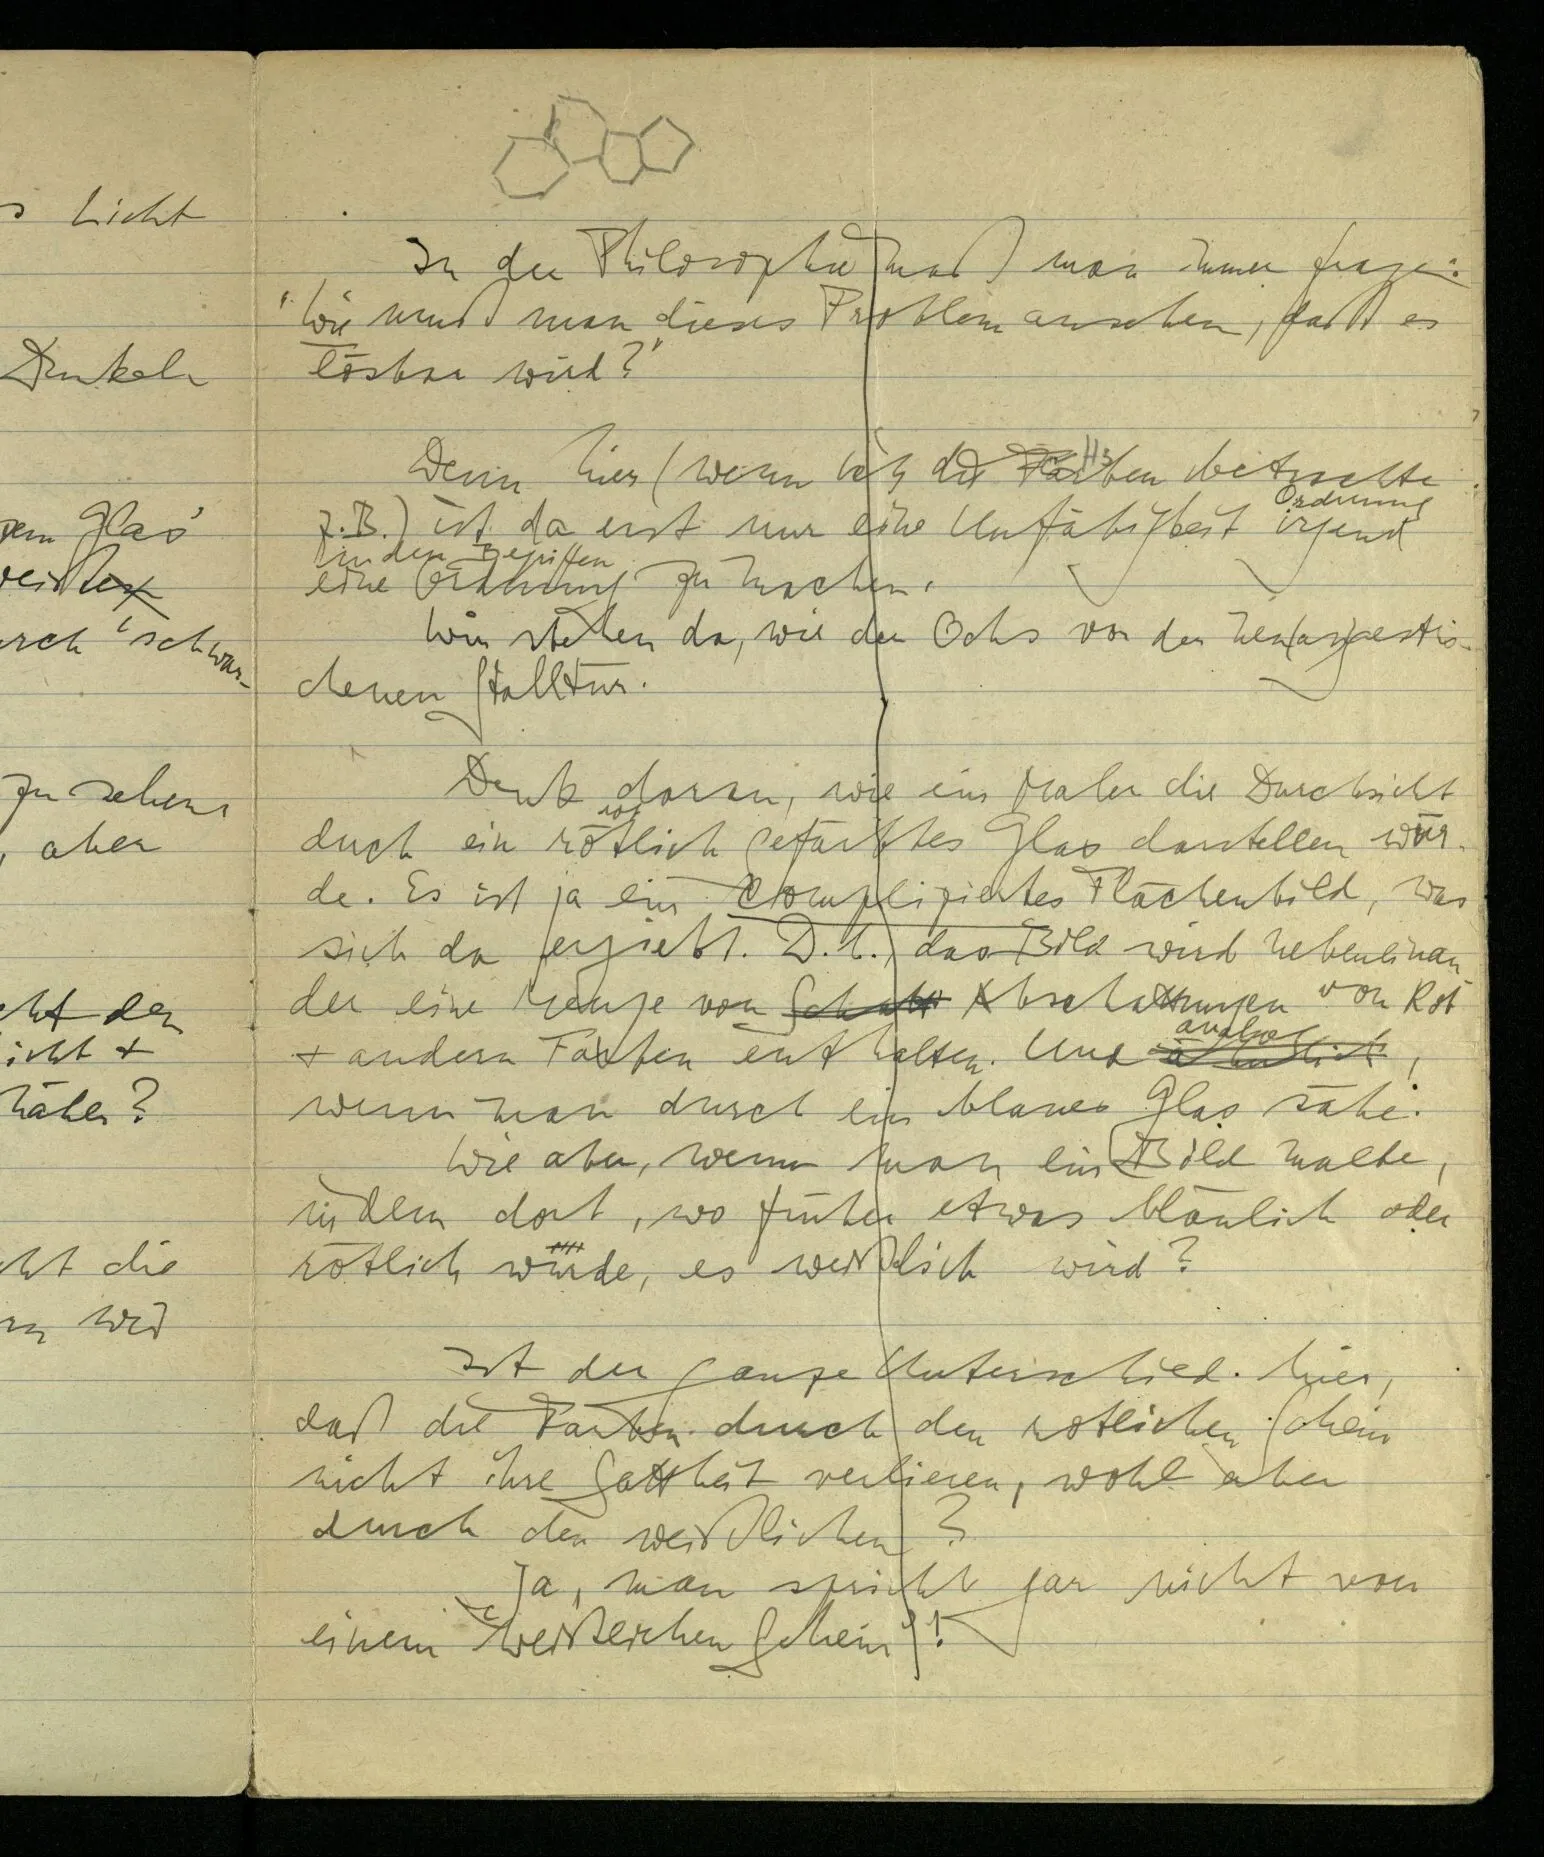 s Licht
Dunkeln
gem Glas'
weißlich
urch 'schwar-
zu sehen
, aber
cht den
icht +
näher?
cht die
rn wird
In der Philosophie muß man immer fragen:
"Wie muß man dieses Problem ansehen, daß es
lösbar wird?"
Denn hier (wenn ich die Farben betrachte
Ordnung
z.B.) ist da erst nur eine Unfähigkeit irgend
in den Begriffen
eine Ordnung zu machen.
Wir stehen da, wie der Ochs vor der neu(an)gestri-
chenen Stalltür.
Denk daran, wie ein Maler die Durchsicht
rot
durch ein rötlich gefärbtes Glas darstellen wür-
de. Es ist ja ein compliziertes Flächenbild, was
sich da ergiebt. D.h., das Bild wird nebeneinan-
der eine Menge von Schatt Abschattungen von Rot
analog
+ andern Farben enthalten. Und ähnlich,
wenn man durch ein blaues Glas sähe.
Wie aber, wenn man ein Bild malte,
indem dort, wo früher etwas bläulich oder
rötlich wurde, es weißlich wird?
Ist der ganze Unterschied hier,
daß die Farben durch den rötlichen Schein
nicht ihre Sattheit verlieren, wohl aber
durch den weißlichen?
Ja, man spricht gar nicht von
einem 'weißlichen Schein'!